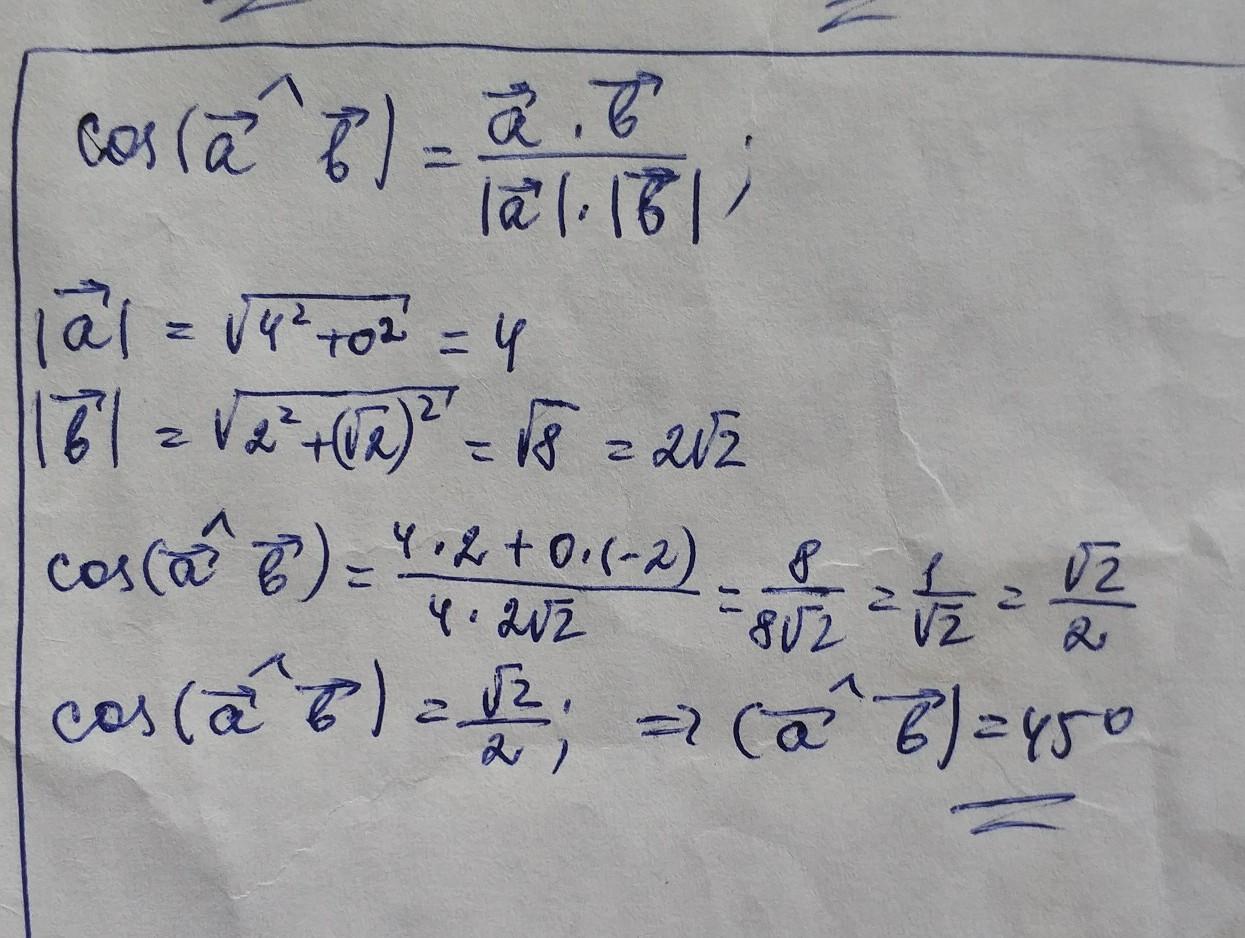 cos(a⃗ ^ b⃗) = (a⃗ · b⃗)/(|a⃗| · |b⃗|);
|a⃗| = √(4² + 0²) = 4
|b⃗| = √(2² + (√2)²) = √8 = 2√2
cos(a⃗ ^ b⃗) = (4 · 2 + 0 · (-2))/(4 · 2√2) = 8/(8√2) = 1/√2 = √2/2
cos(a⃗ ^ b⃗) = √2/2; => (a⃗ ^ b⃗) = 45°